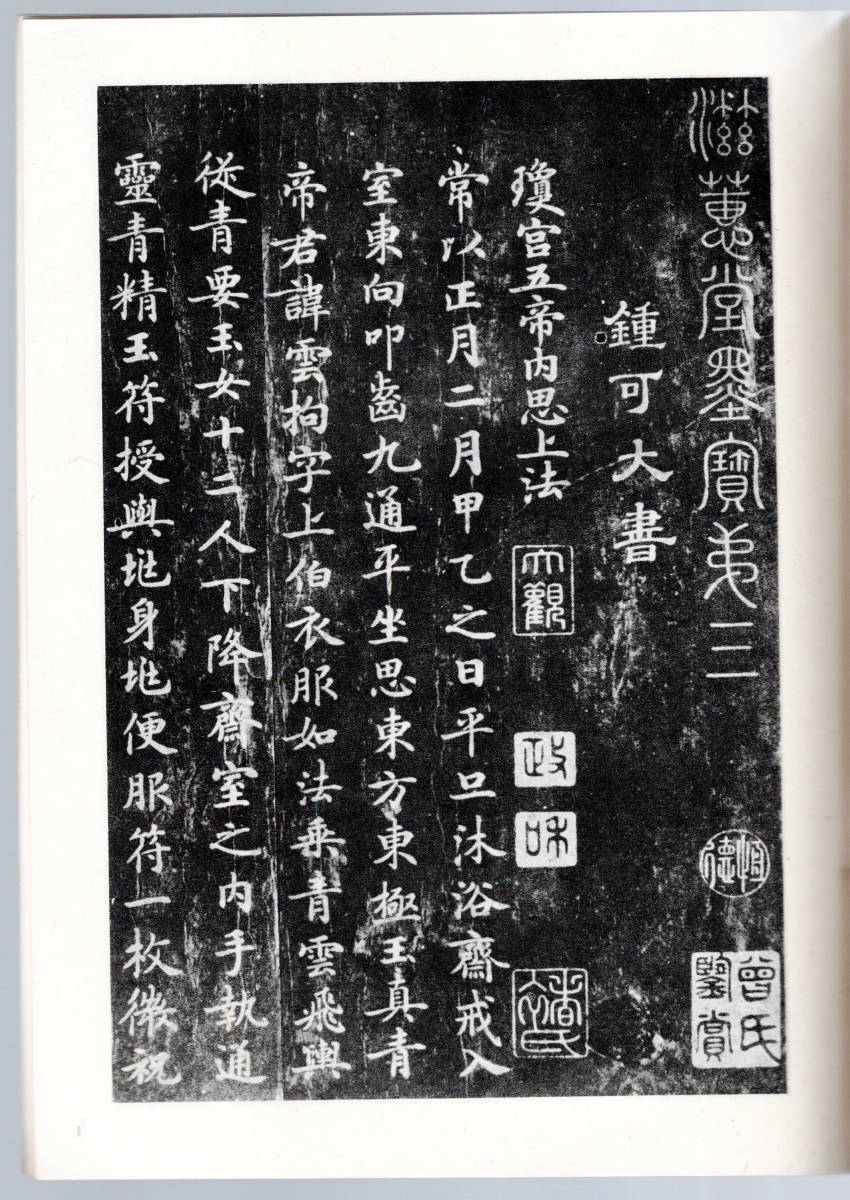 滋蕙堂墨寶弟三
恒德
曾氏鑒賞
鍾可大書
瓊宮五帝内思上法
大觀
政
和
常以正月二月甲乙之日平旦沐浴齋戒入
室東向叩齒九通平坐思東方東極玉真青
帝君諱雲拘字上伯衣服如法乗青雲飛輿
從青要玉女十二人下降齋室之内手執通
靈青精玉符授與兆身兆便服符一枚微祝
1